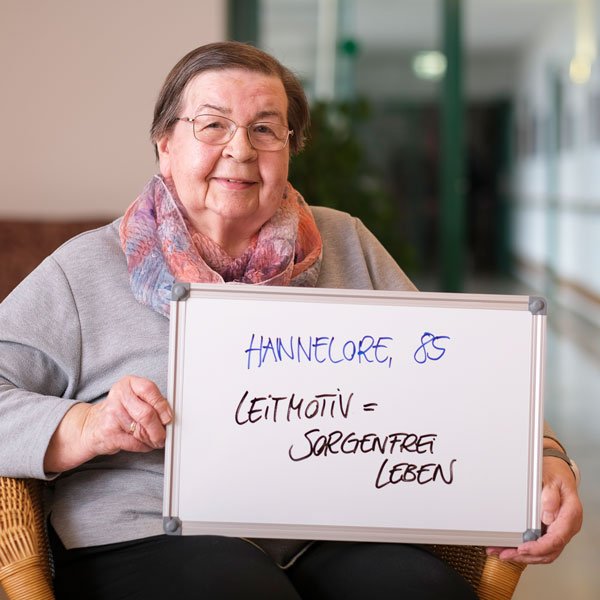 HANNELORE, 85
LEITMOTIV =
SORGENFREI
LEBEN